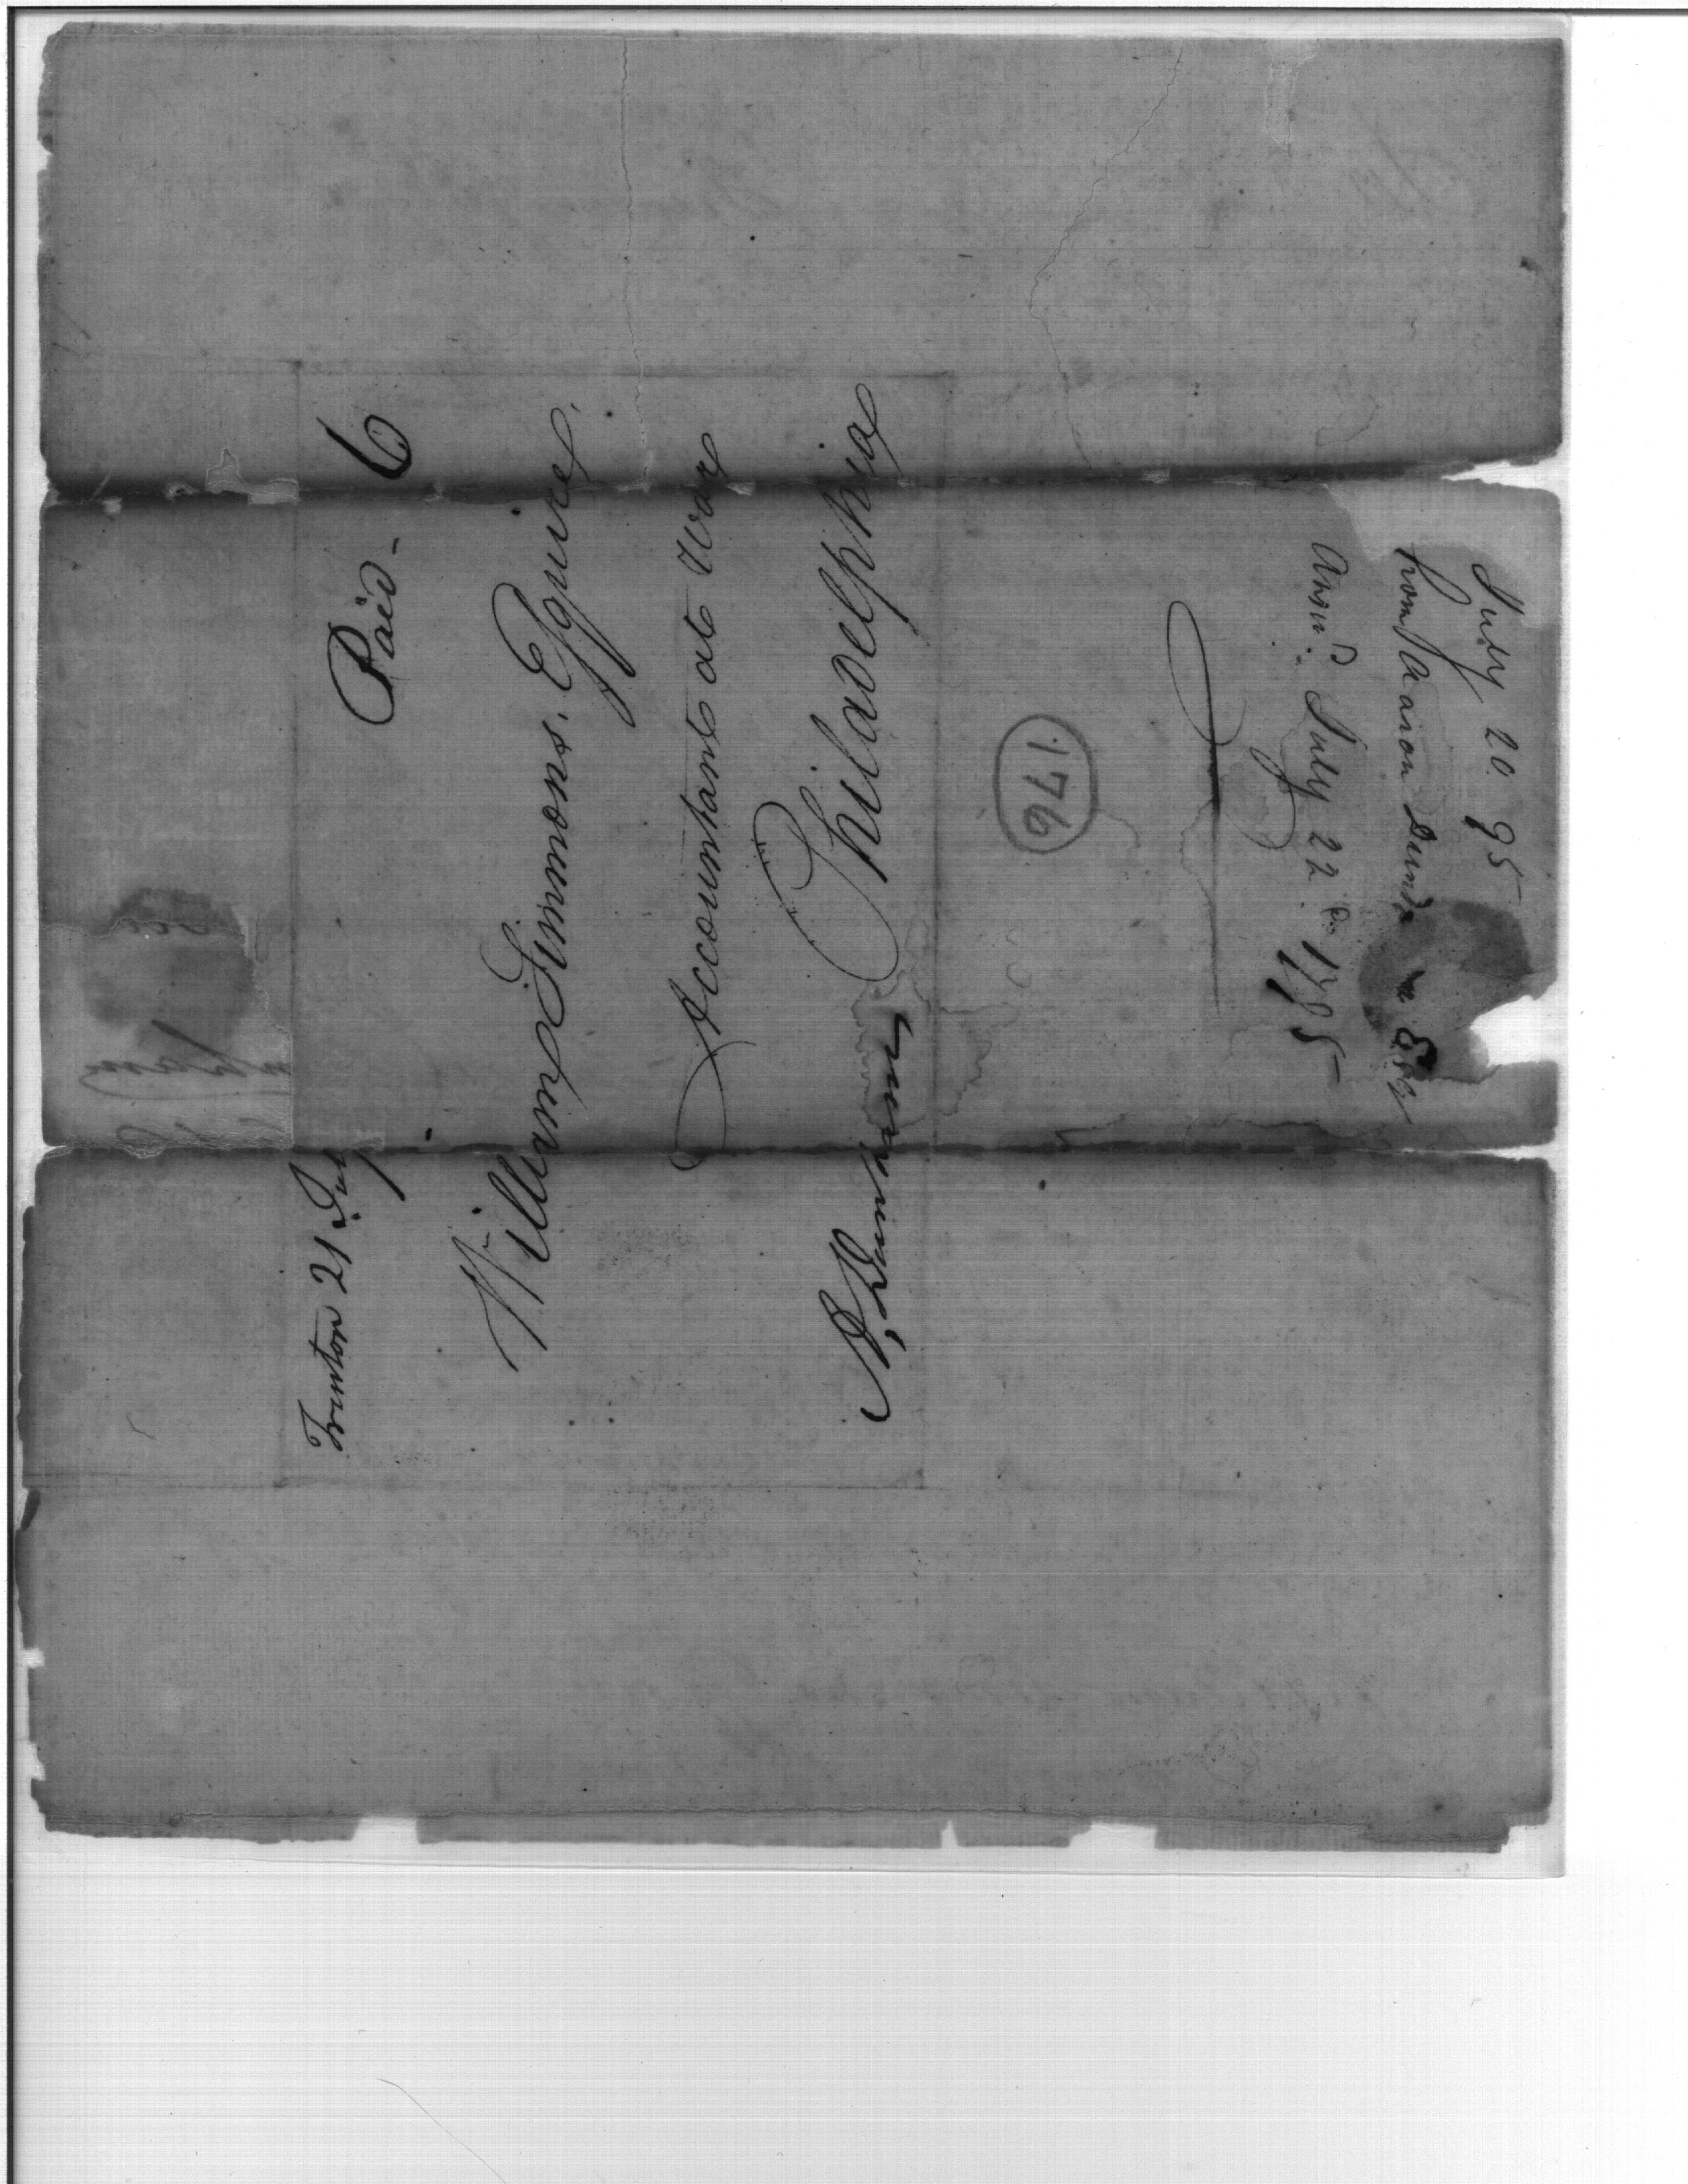 Trenton 21 July
Paid - 6
William Simmons, Esquire,
Accountant at War
Philadelphia
176
July 20. 95
from Aaron Dunham Esq
Answd. July 22d. 1795